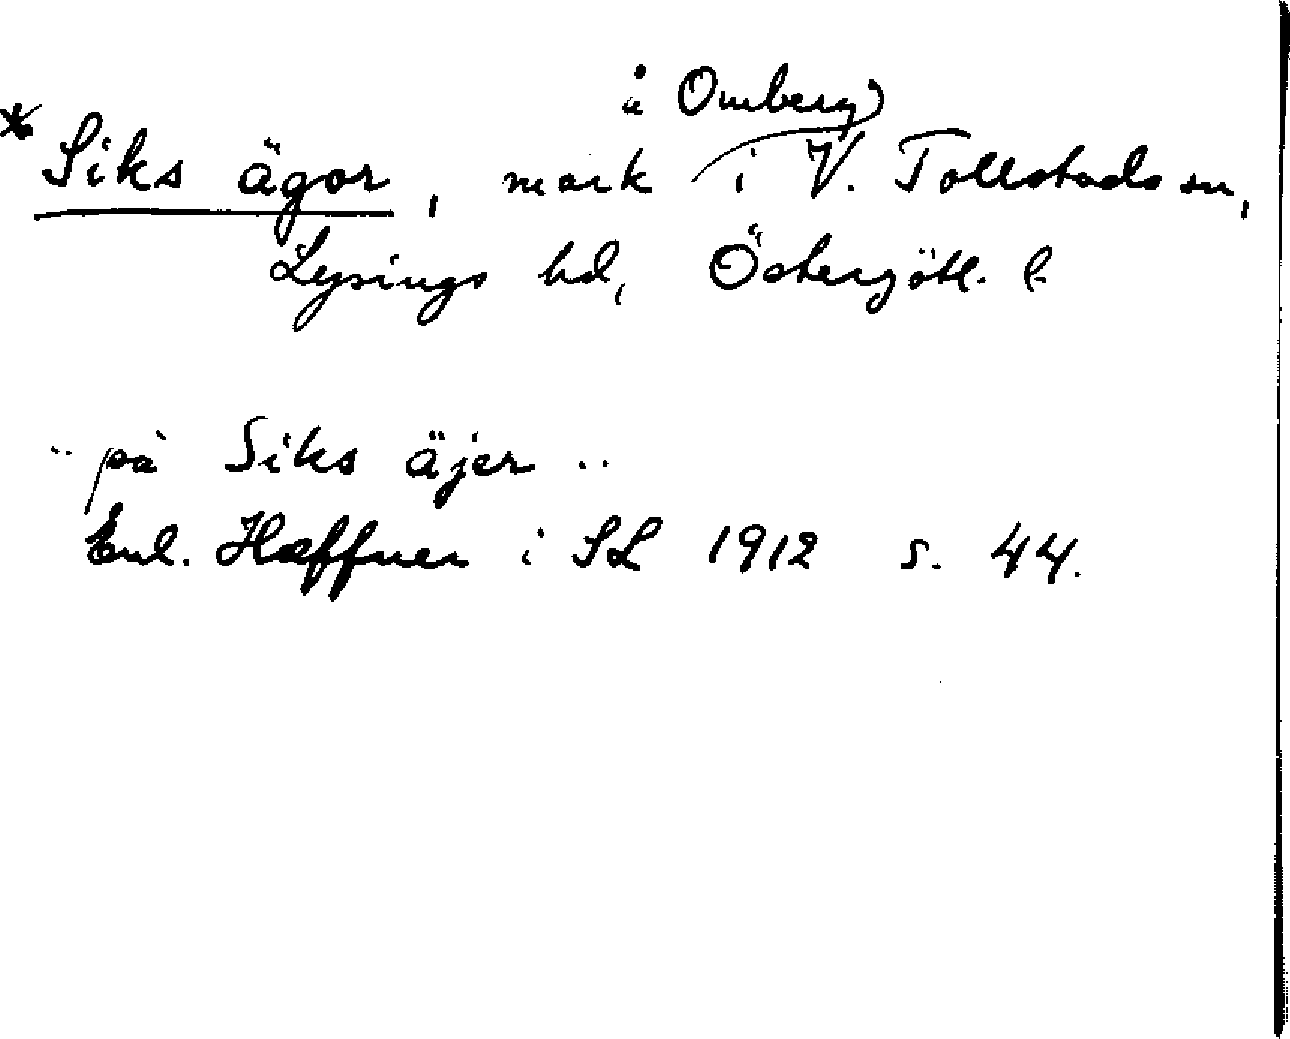 å Omberg
* Siks ägor, mark i V. Tollstads sn,
Lysings hd, Östergötl. l.
.. på Siks äjer ..
Enl. Hæffner i SL 1912 s. 44.